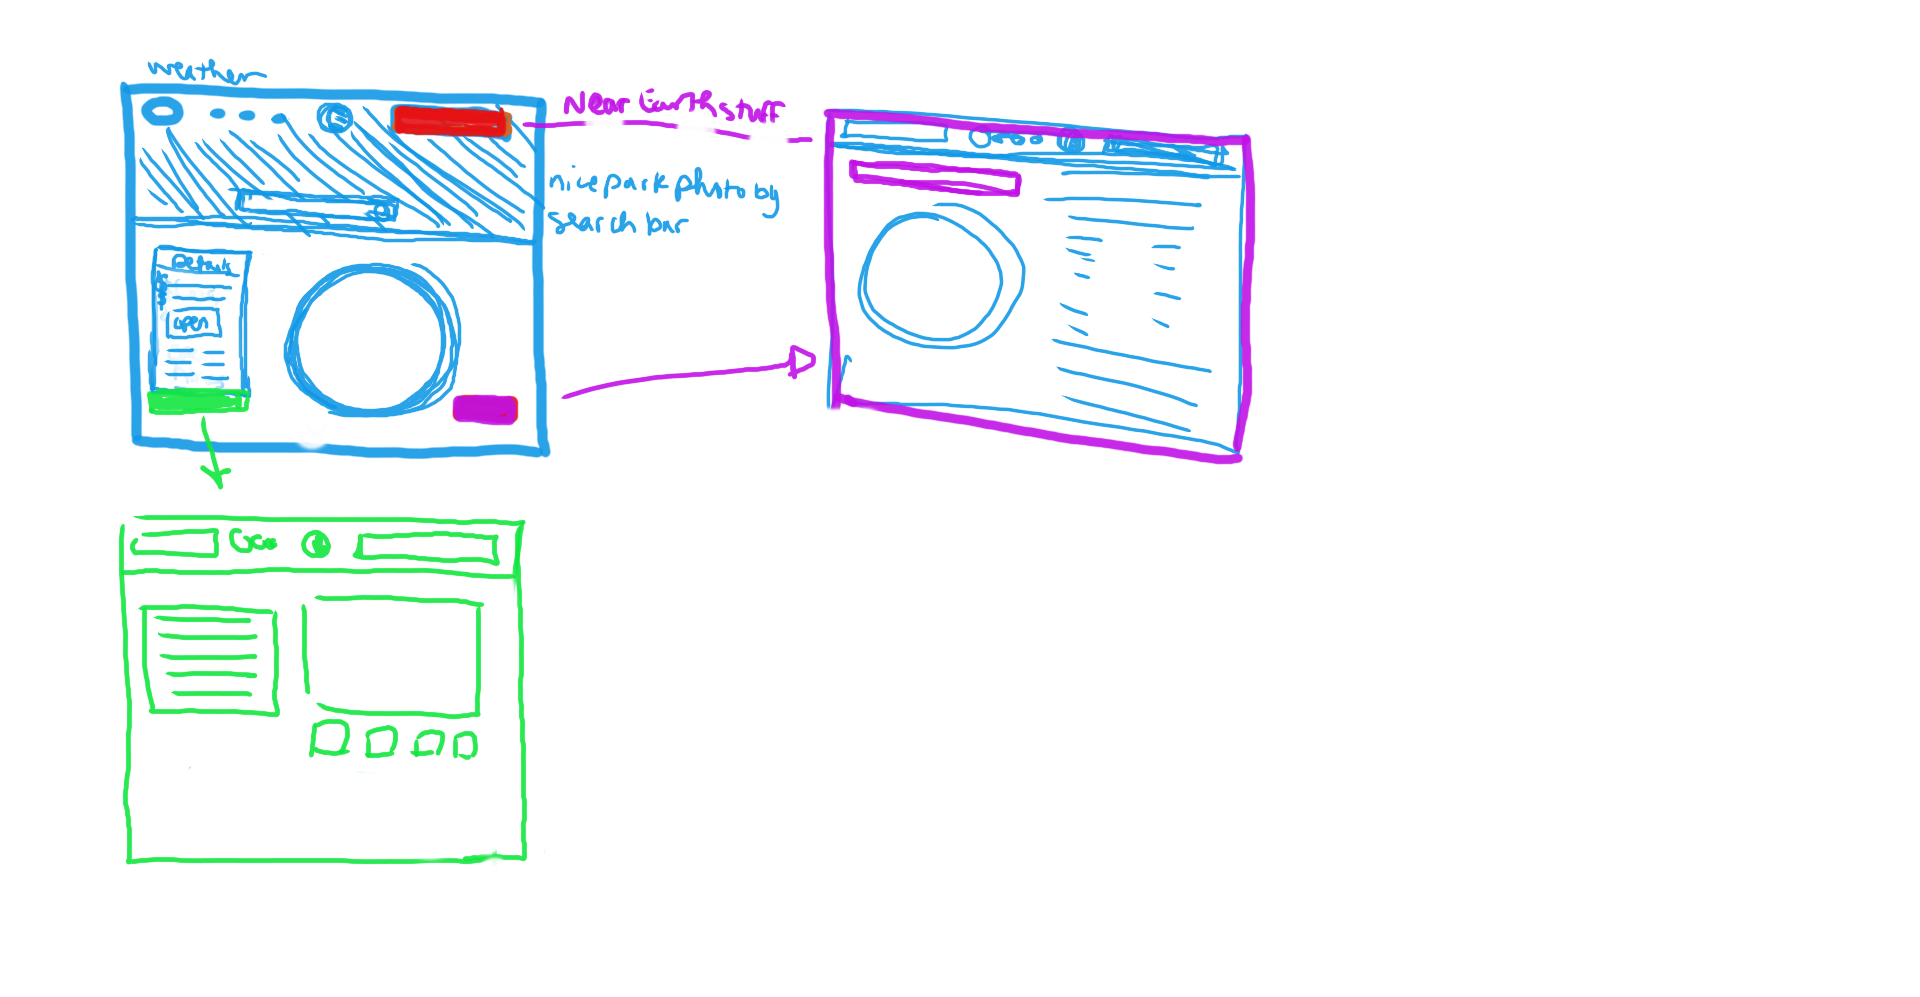 weather
Near Earth stuff
nice park photo by
search bar
Details
open